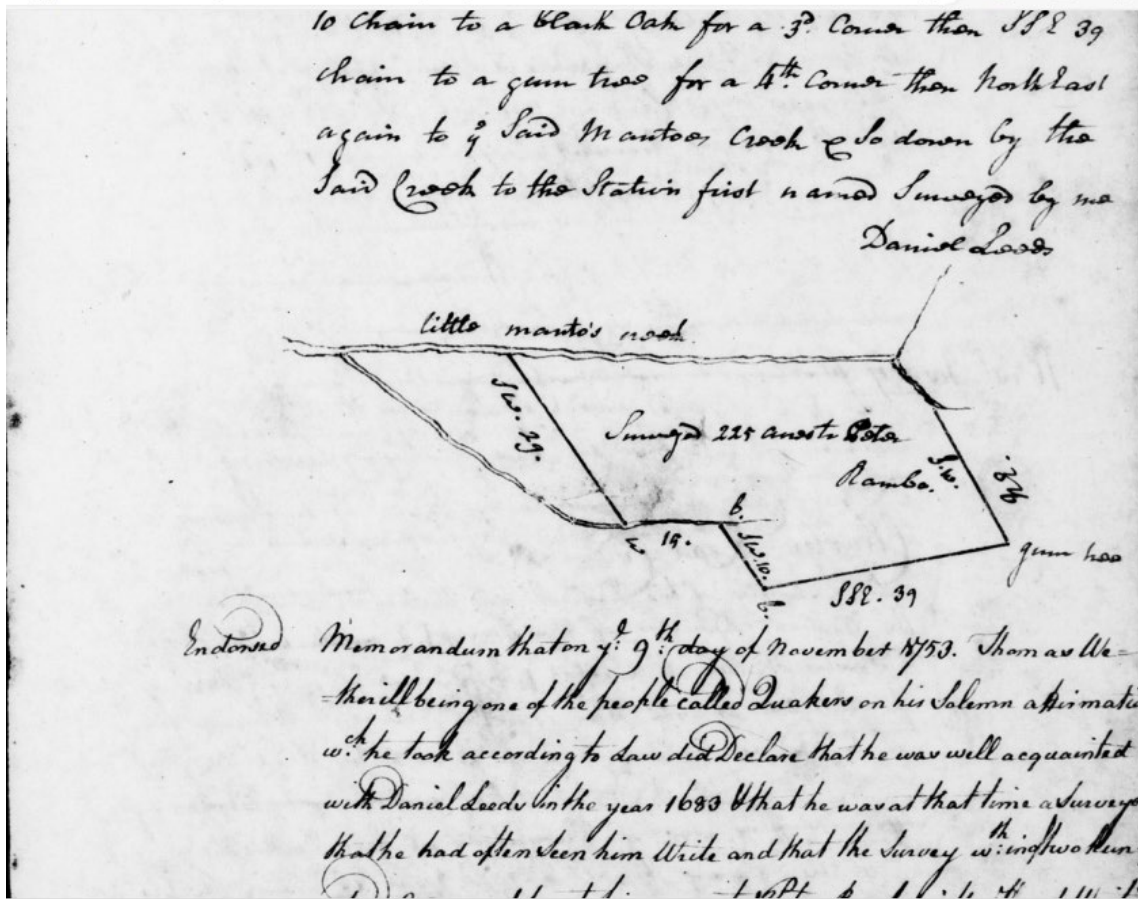 10 Chain to a black Oak for a 3d. Corner then SSE 39
Chain to a gum tree for a 4th. Corner then North East
again to ye Said Mantoes Creek & So down by the
Said Creek to the Station first named Surveyed by me
Daniel Leeds
little manto's creek
SW. 29.
Surveyed 225 acres to Peter
Rambo.
S.W.
b.
15.
W
SW.10.
b.
SSE. 39
gum tree
Endorsed
Memorandum that on ye. 9th. day of November 1753. Thomas We=
=therill being one of the people called Quakers on his Solemn affirmatio
wch. he took according to Law did Declare that he was well acquainted
with Daniel Leeds in the year 1683 & that he was at that time a Surveyo
that he had often Seen him Write and that the Survey wth:in